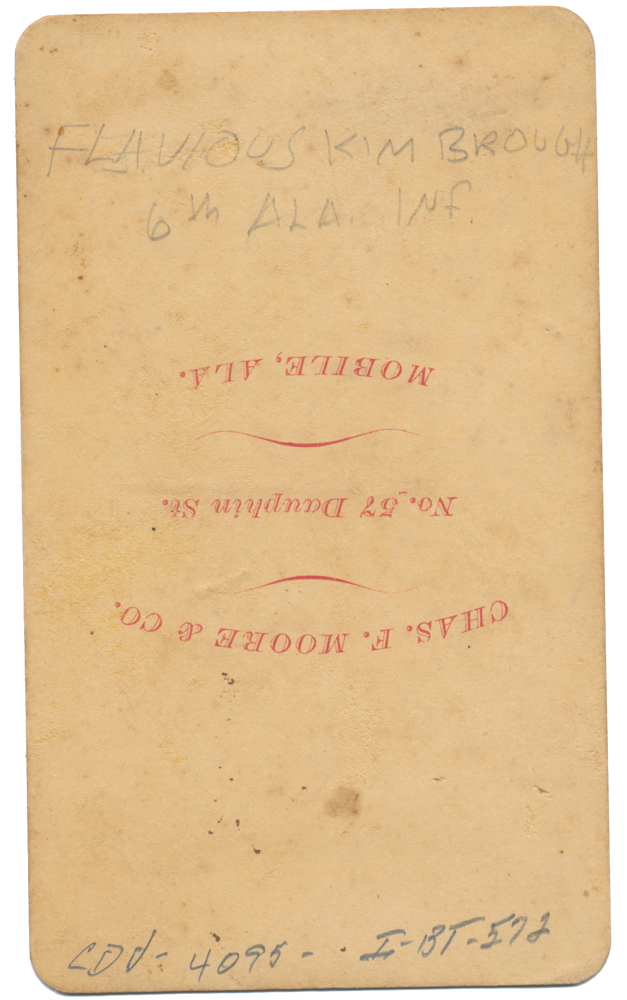 FLAVIOUS KIMBROUGH
6th ALA. INF.
CHAS. F. MOORE & CO.
No. 57 Dauphin St.
MOBILE, ALA.
CDV- 4095- I-BT-572